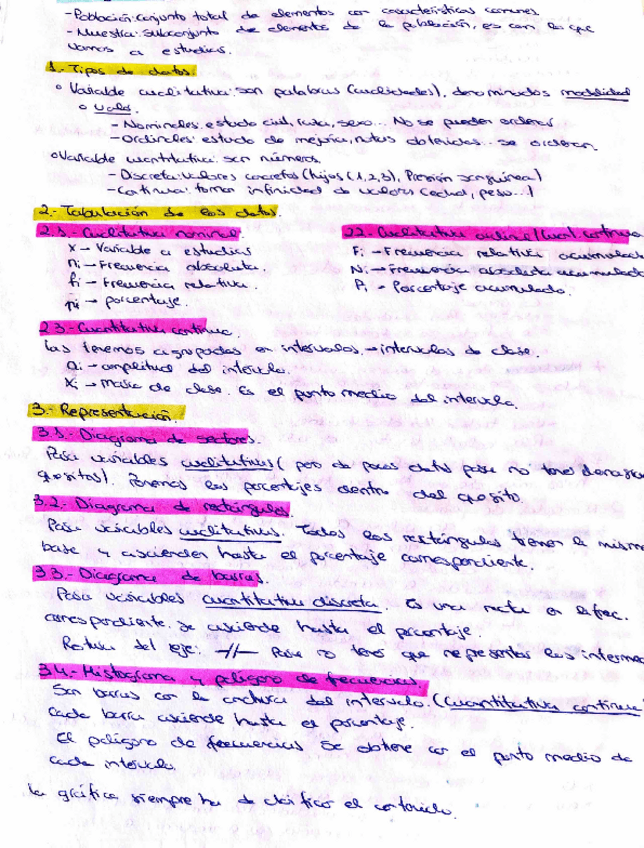 -Población: conjunto total de elementos con características comunes.
-Muestra: subconjunto de elementos de la población, es con la que
vamos a estudiar.
1.-Tipos de datos.
° Variable cualitativa: son palabras (cualidades), denominadas modalidad
- Nominales: estado civil, ruta, sexo... No se pueden ordenar
- Ordinales: estado de mejoría, notas obtenidas... se ordenan.
° Variable cuantitativa: son números.
- Discreta: valores concretos (hijos (1,2,3), Presión sanguínea)
- Continua: toman infinidad de valores (edad, peso...)
2.- Tabulación de los datos.
2.1.- Cualitativa nominal.
X - Variable a estudiar
ni - Frecuencia absoluta.
fi - Frecuencia relativa.
pi - porcentaje.
2.2.- Cualitativa ordinal (cuant. continua
Fi - Frecuencia relativa acumulada
Ni - Frecuencia absoluta acumulada
Pi - Porcentaje acumulado.
2.3.- Cuantitativa continua.
Las tenemos agrupadas en intervalos. → intervalos de clase.
ai - amplitud del intervalo.
Xi → marca de clase. Es el punto medio del intervalo.
3.- Representación.
3.1.- Diagrama de sectores.
Para variables cualitativas (pero de pocos datos para no tener
quesitos). Ponemos los porcentajes dentro del quesito.
3.2.- Diagrama de rectángulos.
Para variables cualitativas. Todos los rectángulos tienen la misma
base y ascienden hasta el porcentaje correspondiente.
3.3.- Diagrama de barras.
Para variables cuantitativa discreta. Es una recta en
correspondiente. Se asciende hasta el porcentaje.
Rotura del eje: -//- Para no tener que representar los
3.4.- Histograma y polígono de frecuencias.
Son barras con la anchura del intervalo. (cuantitativa continua
Cada barra asciende hasta el porcentaje.
El polígono de frecuencias se obtiene con el punto medio de
cada intervalo.
La gráfica siempre ha de clarificar el contenido.